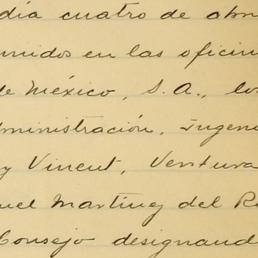 día cuatro de
unidos en las oficin
de México, S.A., los
dministración, Ingeni
y Vincent, Ventura
uel Martinez del R
Consejo designand